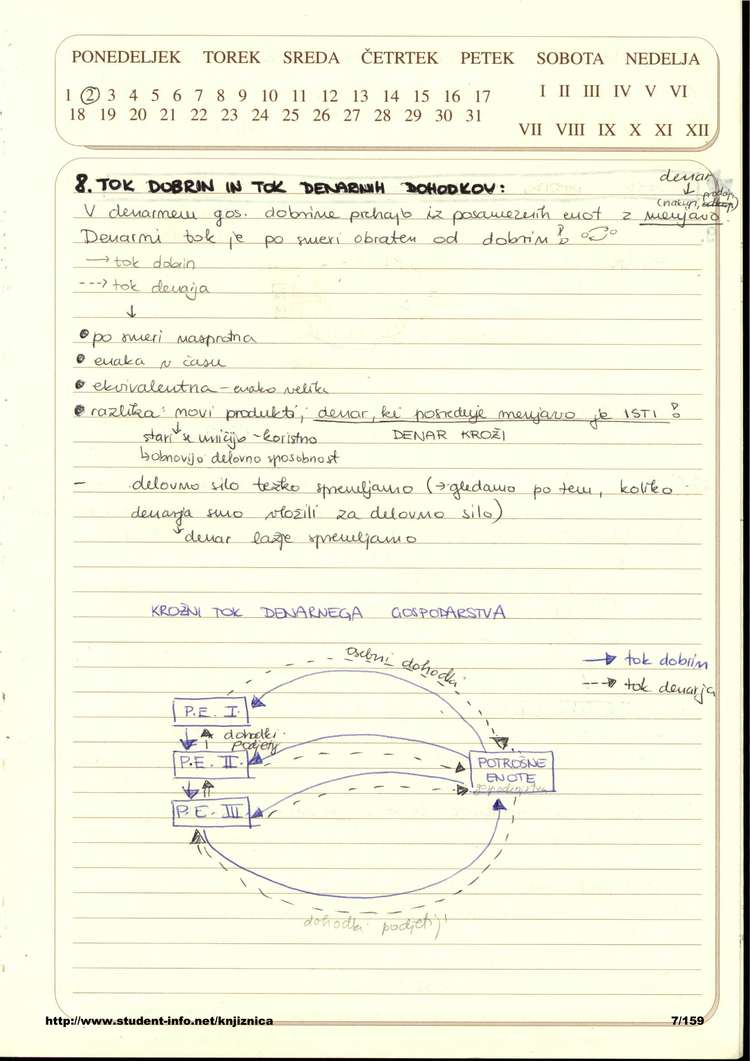 PONEDELJEK TOREK SREDA ČETRTEK PETEK SOBOTA NEDELJA
1 2 3 4 5 6 7 8 9 10 11 12 13 14 15 16 17
18 19 20 21 22 23 24 25 26 27 28 29 30 31
I II III IV V VI
VII VIII IX X XI XII
8. TOK DOBRIN IN TOK DENARNIH DOHODKOV:
denar
↓ prodaja
(nakup, )
V denarnem gos. dobrine prihajajo iz posameznih enot z menjavo.
Denarni tok je po smeri obraten od dobrin!
→ tok dobrin
---> tok denarja
↓
• po smeri nasprotna
• enaka v času
• ekvivalentna - enako velika
• razlika: novi produkti, denar, ki posreduje menjavo je ISTI!
stari se uničijo - koristno DENAR KROŽI
↳ obnovijo delovno sposobnost
- delovno silo težko spremljamo (→ gledamo po tem, koliko
denarja smo vložili za delovno silo)
↓ denar lažje spremljamo
KROŽNI TOK DENARNEGA GOSPODARSTVA
→ tok dobrin
---> tok denarja
osebni dohodki
P.E. I.
dohodki
podjetij
P.E. II.
P.E. III
POTROŠNE
ENOTE
gospodinjstva
dohodki podjetij
http://www.student-info.net/knjiznica
7/159